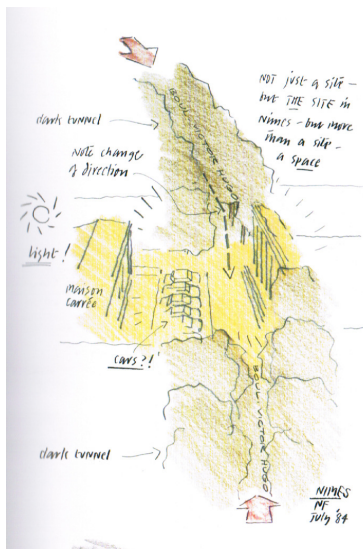 NOT just a site –
but THE SITE in
Nimes – but more
than a site –
a space
dark tunnel
BOUL VICTOR HUGO
Note change
of direction
light!
maison
carrée
cars?!
BOUL VICTOR HUGO
dark tunnel
NIMES
NF
July '84